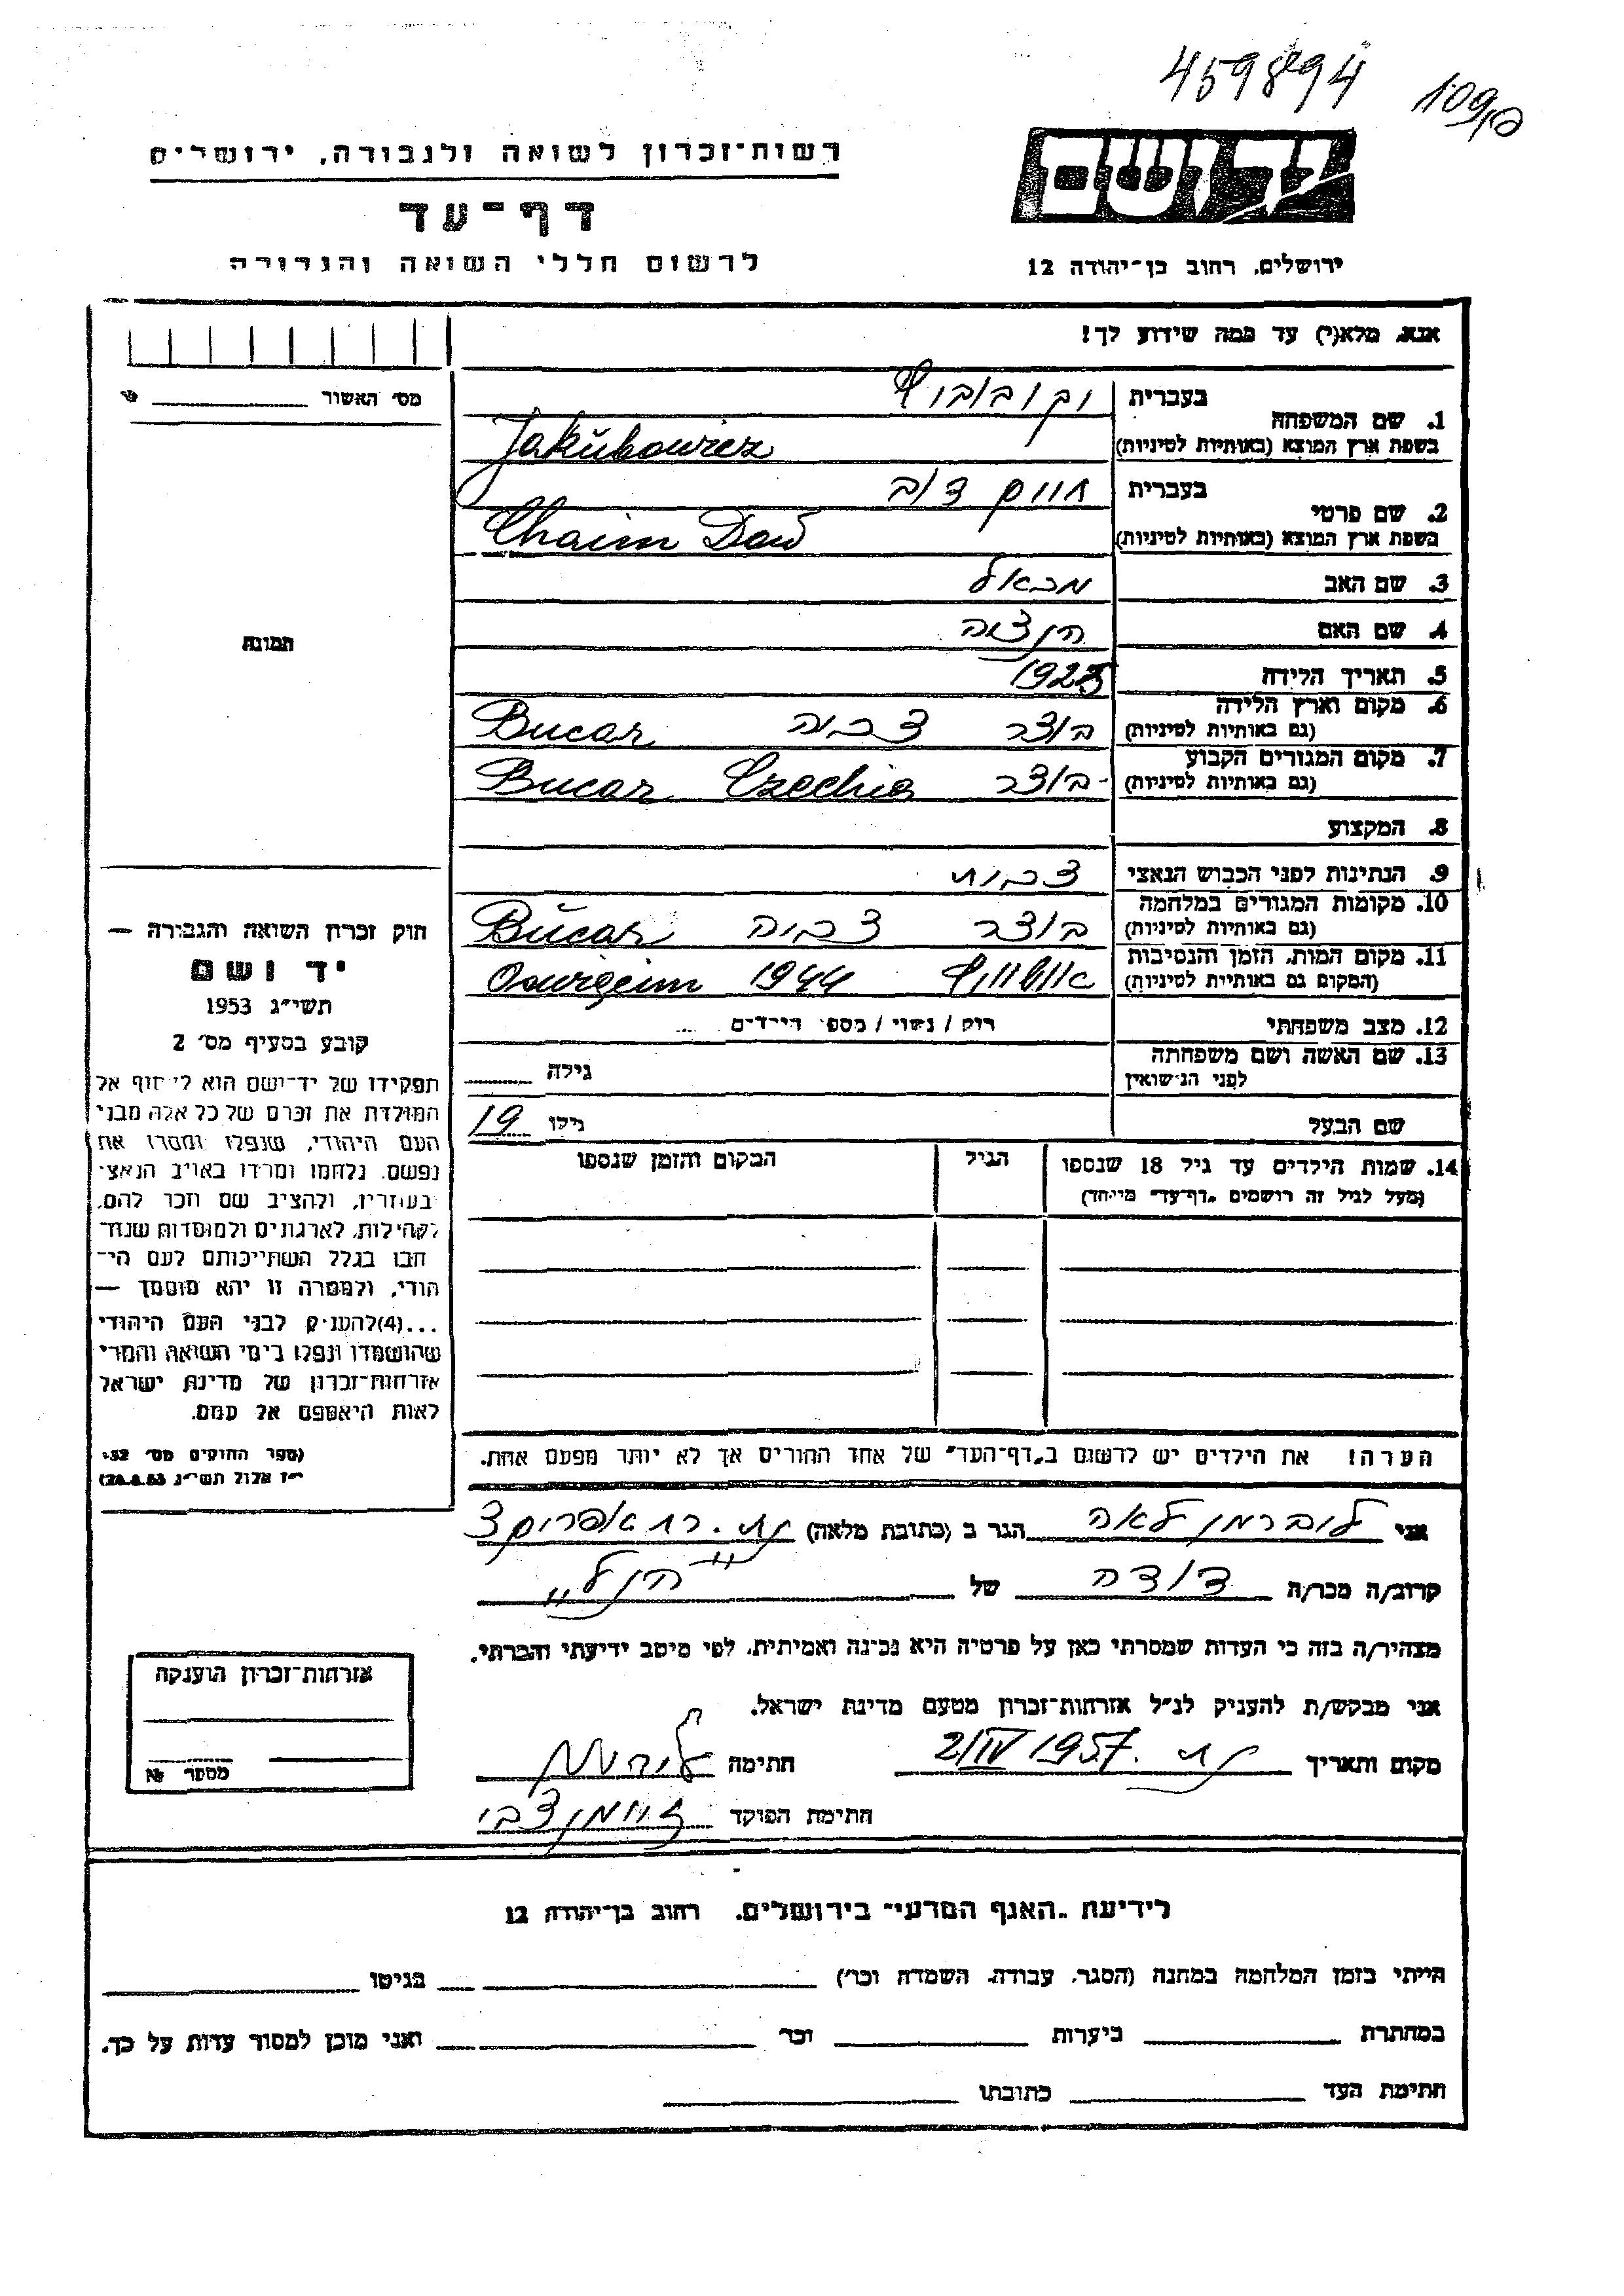 459894 109/
רשות־זכרון לשואה ולגבורה, ירושלים
יד ושם
דף־עד
לרשום חללי השואה והגבורה
ירושלים, רחוב בן־יהודה 12
אנא, מלא(י) עד כמה שידוע לך!
מס׳ האשור
1. שם המשפחה
בעברית יקובוביץ
בשפת ארץ המוצא (באותיות לטיניות) Jakubowicz
2. שם פרטי
בעברית חיים דוב
בשפת ארץ המוצא (באותיות לטיניות) Chaim Dow
3. שם האב מכאל
4. שם האם הנצה
תמונה
5. תאריך הלידה 1925
6. מקום וארץ הלידה (גם באותיות לטיניות) בוצר צכיה Bucar
7. מקום המגורים הקבוע (גם באותיות לטיניות) בוצר Bucar Czechia
8. המקצוע
9. הנתינות לפני הכבוש הנאצי צכית
10. מקומות המגורים במלחמה (גם באותיות לטיניות) בוצר צכיה Bucar
11. מקום המות, הזמן והנסיבות (המקום גם באותיית לטיניות) אושויץ 1944 Oswigcim
12. מצב משפחתי רוק / נשוי / מספר הילדים
13. שם האשה ושם משפחתה לפני הנישואין גילה
שם הבעל גילו 19
14. שמות הילדים עד גיל 18 שנספו הגיל המקום והזמן שנספו
(מעל לגיל זה רושמים "דף־עד" מייחד)
חוק זכרון השואה והגבורה —
יד ושם
תשי״ג 1953
קובע בסעיף מס׳ 2
תפקידו של יד־ושם הוא לאסוף אל
המולדת את זכרם של כל אלה מבני
העם היהודי, שנפלו ומסרו את
נפשם, נלחמו ומרדו באויב הנאצי
בעוזריו, ולהציב שם וזכר להם,
לקהילות, לארגונים ולמוסדות שנח־
רבו בגלל השתייכותם לעם הי־
הודי, ולמטרה זו יהא מוסמך —
...(4)להעניק לבני העם היהודי
שהושמדו ונפלו בימי השואה והמרי
אזרחות־זכרון של מדינת ישראל
לאות היאספם אל עמם.
(ספר החוקים מס׳ 132,
י״ז אלול תשי״ג 28.8.53)
הערה! את הילדים יש לרשום ב„דף־העד״ של אחד ההורים אך לא יותר מפעם אחת.
אני ליברמן לאה הגר ב (כתובת מלאה) נת. רח אפרים 3
קרוב/ה מכר/ה דודה של "הנ״ל"
מצהיר/ה בזה כי העדות שמסרתי כאן על פרטיה היא נכונה ואמיתית, לפי מיטב ידיעתי והכרתי.
אני מבקש/ת להעניק לנ״ל אזרחות־זכרון מטעם מדינת ישראל.
מקום ותאריך נת. 2/IV 1957 חתימה
חתימת הפוקד
אזרחות־זכרון הוענקה
מספר №
לידיעת „האגף המדעי״ בירושלים, רחוב בן־יהודה 12
הייתי בזמן המלחמה במחנה (הסגר, עבודה, השמדה וכר׳) בגיטו
במחתרת ביערות וכר ואני מוכן למסור עדות על כך.
חתימת העד כתובתו